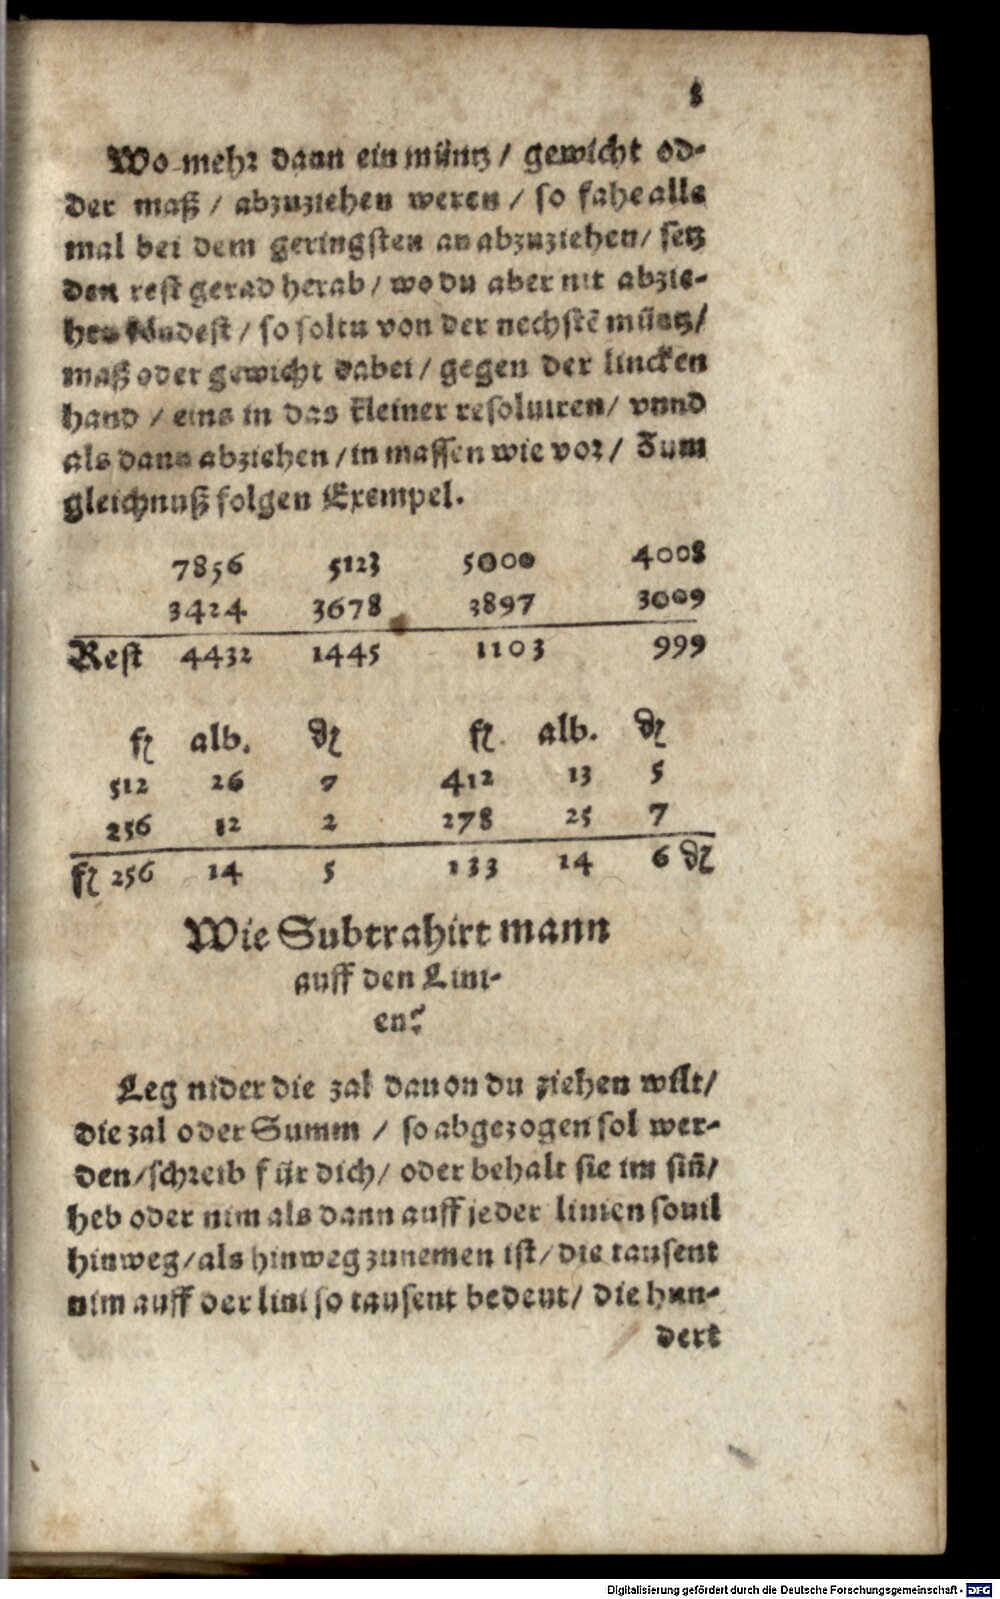 8
Wo mehr dann ein müntz / gewicht od-
der maß / abzuziehen weren / so fahe alle
mal bei dem geringsten an abzuziehen / setz
den rest gerad herab / wo du aber nit abzie-
hen köndest / so soltu von der nechstẽ müntz /
maß oder gewicht dabei / gegen der lincken
hand / eins in das kleiner resoluiren / vnnd
als dann abziehen / in massen wie vor / Zum
gleichnuß folgen Exempel.
7856 5123 5000 4008
3424 3678 3897 3009
Rest 4432 1445 1103 999
fl alb. ₰ fl. alb. ₰
512 26 7 412 13 5
256 12 2 278 25 7
fl 256 14 5 133 14 6 ₰
Wie Subtrahirt mann
auff den Lini-
en?
Leg nider die zal dauon du ziehen wilt /
die zal oder Summ / so abgezogen sol wer-
den / schreib für dich / oder behalt sie im siñ /
heb oder nim als dann auff jeder linien souil
hinweg / als hinweg zunemen ist / die tausent
nim auff der lini so tausent bedeut / die hun-
dert
Digitalisierung gefördert durch die Deutsche Forschungsgemeinschaft - DFG